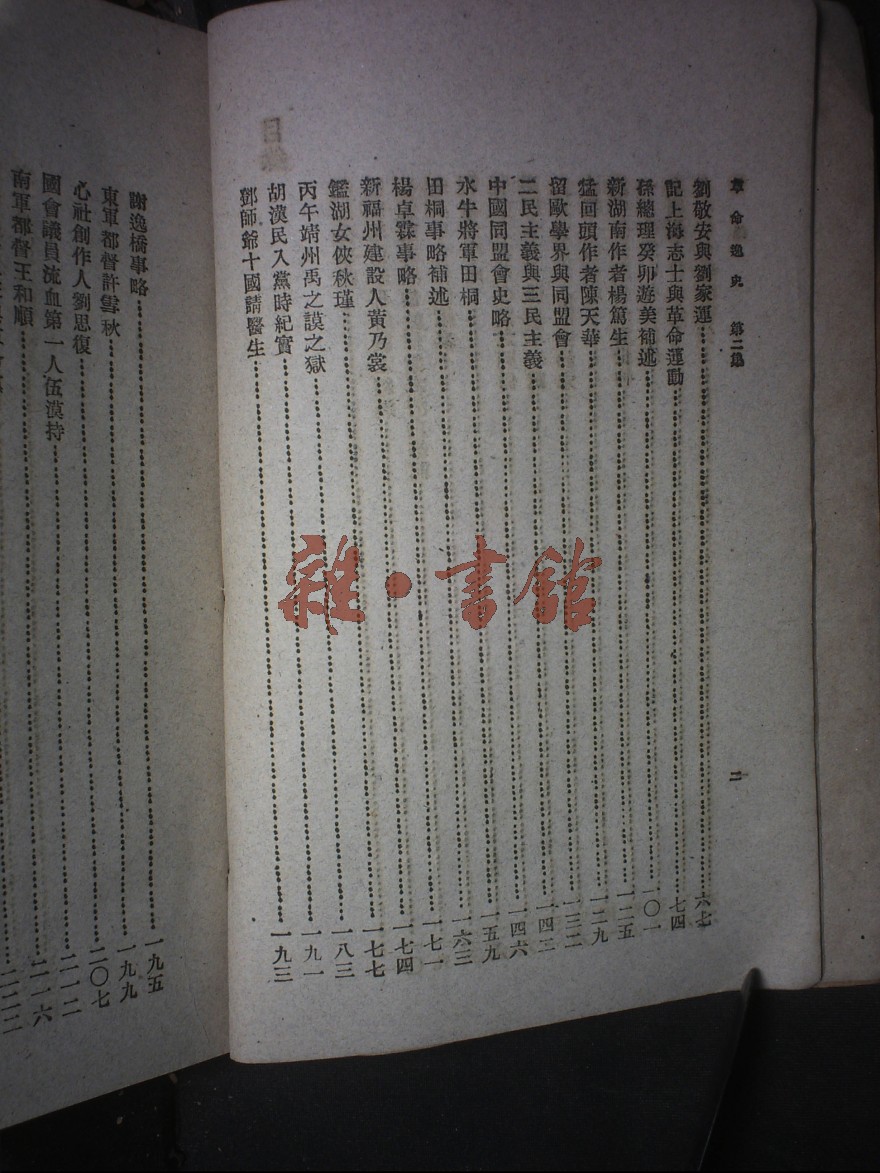 革命逸史 第二集 二
劉敬安與劉家運……六七
記上海志士與革命運動……七四
孫總理癸卯遊美補述……一〇一
新湖南作者楊篤生……一二五
猛回頭作者陳天華……一二九
留歐學界與同盟會……一三二
二民主義與三民主義……一四二
中國同盟會史略……一四六
水牛將軍田桐……一五九
田桐事略補述……一六三
楊卓霖事略……一七一
新福州建設人黃乃裳……一七四
鑑湖女俠秋瑾……一七七
丙午靖州禹之謨之獄……一八三
胡漢民入黨時紀實……一九一
鄧師爺十國請醫生……一九三
謝逸橋事略……一九五
東軍都督許雪秋……一九九
心社創作人劉思復……二〇七
國會議員流血第一人伍漢持……二一二
南軍都督王和順……二一六
雜·書館